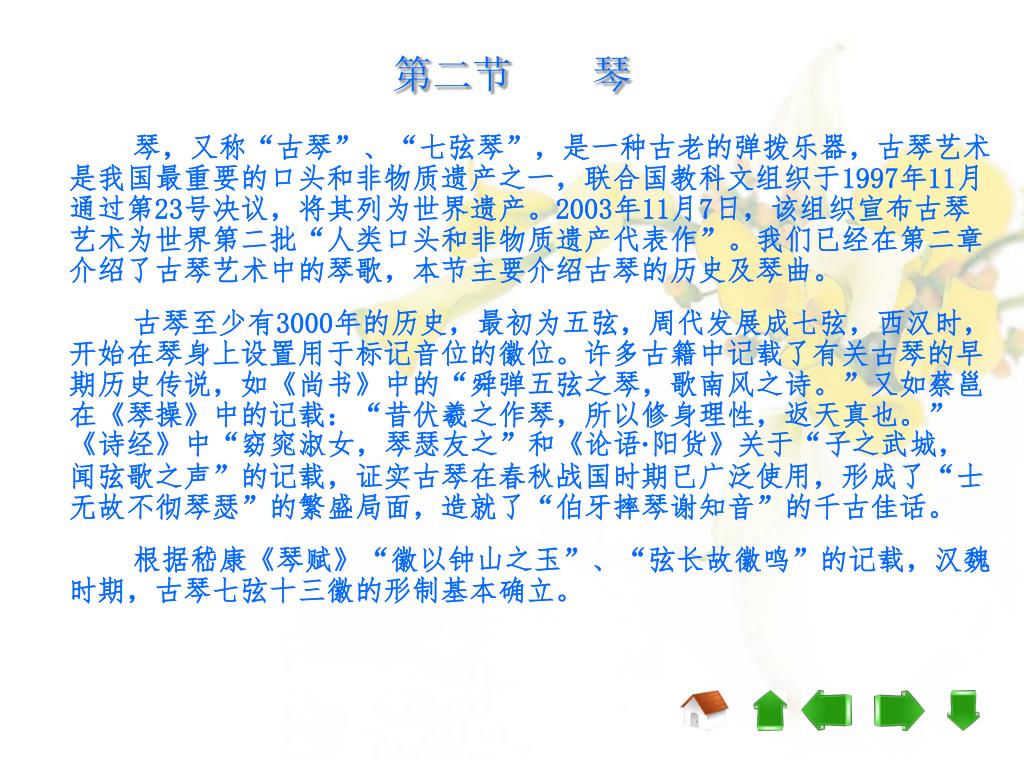 第二节　　琴
琴，又称“古琴”、“七弦琴”，是一种古老的弹拨乐器，古琴艺术
是我国最重要的口头和非物质遗产之一，联合国教科文组织于1997年11月
通过第23号决议，将其列为世界遗产。2003年11月7日，该组织宣布古琴
艺术为世界第二批“人类口头和非物质遗产代表作”。我们已经在第二章
介绍了古琴艺术中的琴歌，本节主要介绍古琴的历史及琴曲。
古琴至少有3000年的历史，最初为五弦，周代发展成七弦，西汉时，
开始在琴身上设置用于标记音位的徽位。许多古籍中记载了有关古琴的早
期历史传说，如《尚书》中的“舜弹五弦之琴，歌南风之诗。”又如蔡邕
在《琴操》中的记载：“昔伏羲之作琴，所以修身理性，返天真也。”
《诗经》中“窈窕淑女，琴瑟友之”和《论语·阳货》关于“子之武城，
闻弦歌之声”的记载，证实古琴在春秋战国时期已广泛使用，形成了“士
无故不彻琴瑟”的繁盛局面，造就了“伯牙摔琴谢知音”的千古佳话。
根据嵇康《琴赋》“徽以钟山之玉”、“弦长故徽鸣”的记载，汉魏
时期，古琴七弦十三徽的形制基本确立。